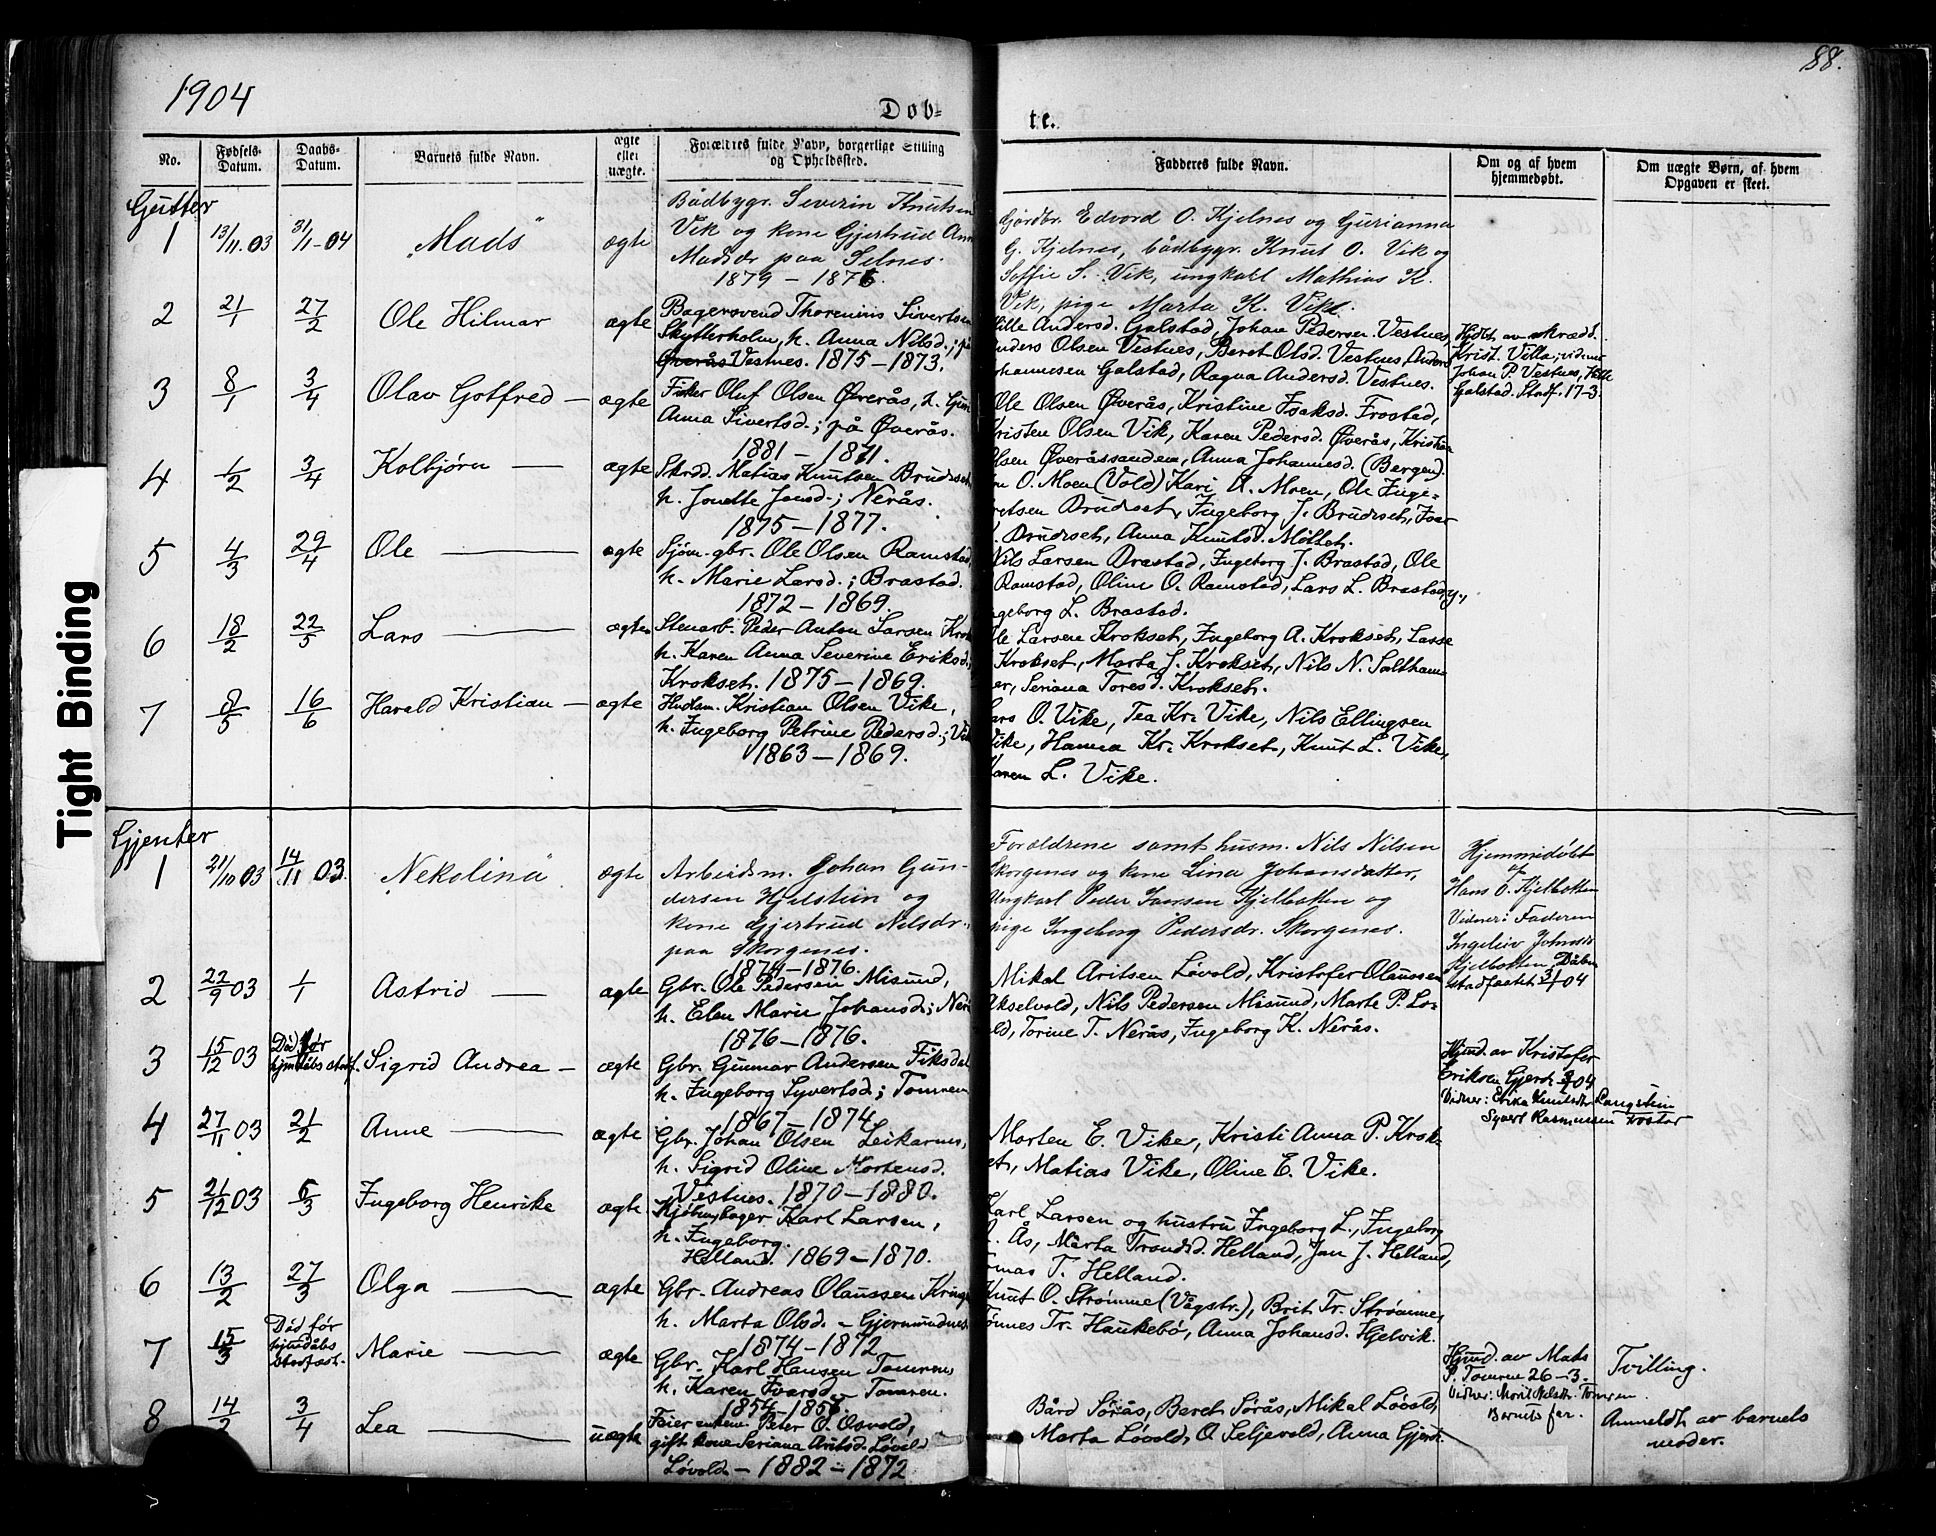 1904
88.
Døb-
te.
No.
Fødsels-
Datum.
Daabs-
Datum.
Barnets fulde Navn.
ægte
eller
uægte.
Forældres fulde Navn, borgerlige Stilling
og Opholdssted.
Fadderes fulde Navn.
Om og af hvem
hjemmedøbt.
Om uægte Børn, af hvem
Opgaven er skeet.
Tight Binding
Gutter
1
13/11.03
31/1-04
"Mads"
ægte
Bådbygr. Severin Knutsen
Vik og kone Gjertrud Ann
Madsdr paa Selnes.
1879 - 1876.
Gårdbr. Edvard O. Kjelnes og Gurianna
G. Kjelnes, bådbygr. Knut O. Vik og
Soffie S. Vik, ungkarl Mathias K.
Vik, pige Marta K. Vik.
2
21/1
27/2
Ole Hilmar
ægte
Bagersvend Thorenius Sivertsen
Skytterholm, h. Anna Nilsd.; på
Øverås Vestnes. 1875 - 1873.
ille Andersd. Galstad, Johan Pedersen Vestnes,
nders Olsen Vestnes, Beret Olsd. Vestnes, Anders
ohannesen Galstad, Ragna Andersd. Vestnes.
Hjdbt. av skrædd.
Krist. Villa; vidner
Johan P. Vestnes, Kille
Galstad. Stadf. 17-3.
3
8/1
3/4
Olav Gotfred —
ægte
Fisker Oluf Olsen Øverås, h. Guri
Anna Sivertsd.; på Øverås.
1881 - 1871.
Ole Olsen Øverås, Kristine Isaksd. Frostad,
Kristen Olsen Vik, Karen Pedersd. Øverås, Kristian
Olsen Øveråssanden, Anna Johannesd. (Bergen).
4
1/2
3/4
Kolbjørn —
ægte
Skrdd. Matias Knutsen Brudeset
h. Jonette Jonsd.; Nerås.
1875 - 1877.
on O. Moen (Vold) Kari A. Moen, Ole Inge-
retsen Brudeset, Ingeborg J. Brudeset, Iver
. Brudeset, Anna Knutsd. Mittet.
5
4/3
29/4
Ole —
ægte
Sjøm. gbr. Ole Olsen Ramstad,
h. Marie Larsd.; Brastad.
1872 - 1869.
Nils Larsen Brastad, Ingeborg J. Brastad, Ole
Ramstad, Oline O. Ramstad, Lars L. Brastad,
ngeborg L. Brastad.
6
18/2
22/5
Lars —
ægte
Stenarb. Peder Anton Larsen Krok
h. Karen Anna Severine Eriksd.;
Krokset. 1875 - 1869.
le Larsen Krokset, Ingeborg A. Krokset, Lasse
Krokset, Marta J. Krokset, Nils N. Saltham-
er, Seriana Toresd. Krokset.
7
8/5
16/6
Harald Kristian —
ægte
Husm. Kristian Olsen Vike,
h. Ingeborg Petrine Pedersd.; Vik
1863 - 1869.
ars O. Vike, Tea Kr. Vike, Nils Ellingsen
Vike, Hanna Kr. Krokset, Knut L. Vike,
Karen L. Vike.
Gjenter
1
21/10 03
14/11 03.
"Nekolina"
ægte
Arbeidsm. Johan Gun-
dersen Hjelstein og
kone Gjertrud Nilsdr.
paa Skorgenes.
1874 - 1876.
Forældrene samt husm. Nils Nilsen
Skorgenes og kone Lina Johansdatter,
Ungkarl Peder Jansen Kjelbotten og
pige Ingeborg Pedersdr. Skorgenes.
Hjemmedøbt
af
Hans O. Kjelbotten
Vidner: Faderen
Ingeleiv Johnsdr
Kjelbotten. Dåben
stadfæstet 3/1 04
2
22/9 03
1/1
Astrid —
ægte
Gbr. Ole Pedersen Misund,
h. Elen Marie Johansd.; Nerå
1876 - 1876.
Mikal Aritsen Løvold, Kristofer Olaussen
Akselvold, Nils Pedersen Misund, Marte P. Lø-
old, Torine T. Nerås, Ingeborg K. Nerås.
3
15/12 03
Død før
hjmdåbs stadf.
Sigrid Andrea —
ægte
Gbr. Gunnar Andersen Fiksdal
h. Ingeborg Syvertsd; Tomren
1867 - 1874
Hjmd. av Kristofer
Eriksen Gjerde 04
Vidner: Erika Knutsdtr Langstein
Syvert Rasmussen Frostad
4
27/11 03
21/2
Anne —
ægte
Gbr. Johan Olsen Leikarnes,
h. Sigrid Oline Mortensd.
Vestnes. 1870 - 1880.
Morten E. Vike, Kristi Anna P. Krok-
et, Matias Vike, Oline E. Vike.
5
21/12 03
6/3
Ingeborg Henrike
ægte
Karl Larsen,
h. Ingeborg.
Helland. 1869 - 1870.
Karl Larsen og hustru Ingeborg L., Ingeborg
O. Ås, Marta Trondsd. Helland, Jan J. Helland,
omas T. Helland.
6
13/2
27/3
Olga —
ægte
Gbr. Andreas Olaussen Kring
h. Marta Olsd. - Gjermundnes.
1874 - 1872
Knut O. Strømme (Vågstr.), Brit Tr. Strømme,
Tønnes Tr. Haukebø, Anna Johansd. Hjelvik.
7
15/3
Død før
hjmdåbs
stadfæst.
Marie —
ægte
Gbr. Karl Hansen Tomren,
h. Karen Ivarsd. - Tomren.
1854 - 1856
Hjmd. av Mats
P. Tomren 26-3.
Vidner: Marit Nilsdtr. Tomren.
Barnets far.
Tvilling.
8
14/2
3/4
Lea —
uægte
Peter O. Osvold,
gift kone Seriana Aritsd. Løvold
Løvold - 1882 - 1872
Bård Sørås, Beret Sørås, Mikal Løvold,
Marta Løvold, O. Seljevold, Anna Gjerde.
Anmeldt av barnets
moder.